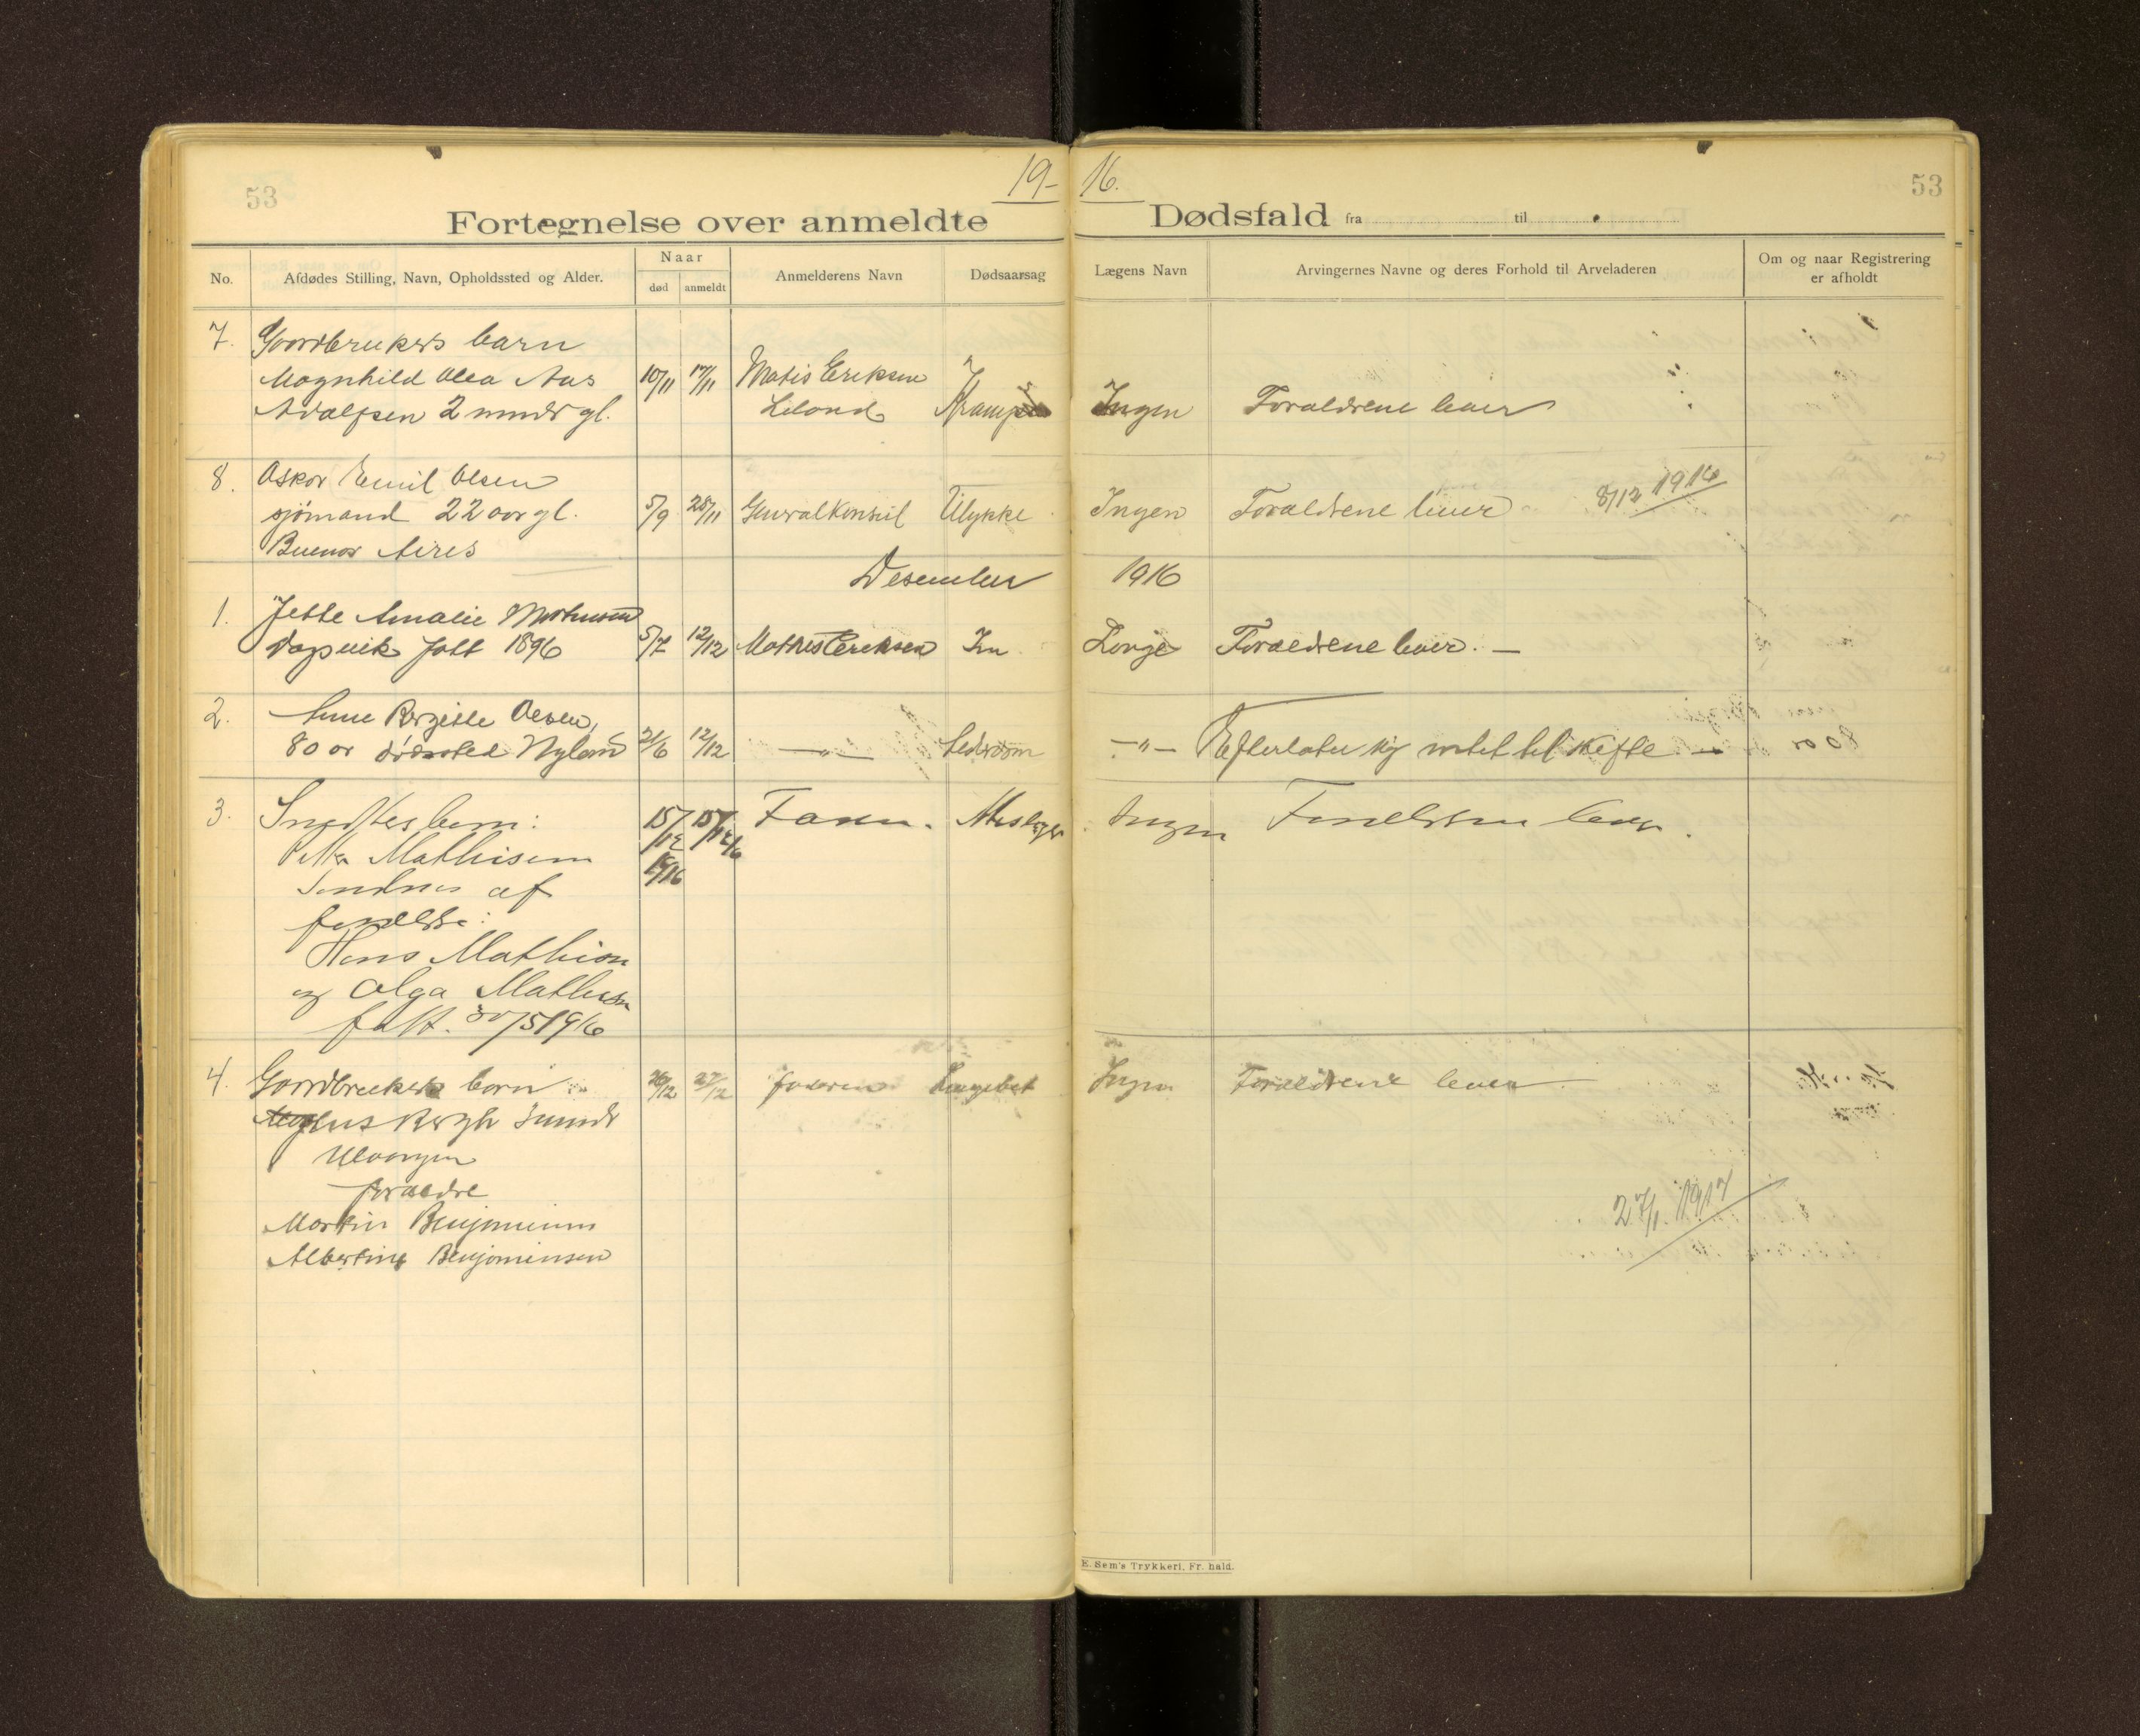 19-16.
53
53
Fortegnelse over anmeldte Dødsfald fra til
No.
Afdødes Stilling, Navn, Opholdssted og Alder.
Naar
død
anmeldt
Anmelderens Navn
Dødsaarsag
Lægens Navn
Arvingernes Navne og deres Forhold til Arveladeren
Om og naar Registrering
er afholdt
7. Gaardbrukers barn
Magnhild Olea Aas 10/11 17/11 Matis Eriksen
Adolfsen 2 mndr gl. Leland Krampe Ingen Foraldrene lever
8. Oskar Emil Olsen
sjømand 22 aar gl. 5/9 28/11 Generalkonsul Ulykke Ingen Foraldrene lever 8/12 1916
Buenos Aires
Desember 1916
1. Jette Amalie
født 1896 5/7 12/12 Mathis Eriksen Lorge Foraeldrene lever. —
2. Olsen,
80 ar dødssted Nyland 21/6 12/12 —"— —"— Efterlater sig intet til skifte —
3. 15/12 15/12 16 Faren. Ingen lever.
Mathisen 1916
af
Hans Mathisen
og Olga Mathisen
født. 30/5 1916
4. Gaardbrukers barn 26/12 27/12 faderen Ingen Foraldrene lever
Bergh
foraldre
Martin Benjaminsen
Albertine Benjaminsen
2/1. 1917
E. Sem's Trykkeri, Fr.hald.